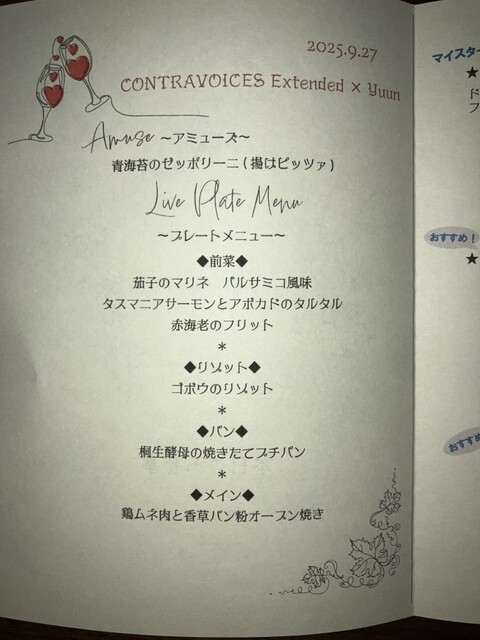 2025.9.27
CONTRAVOICES Extended × Yuun
Amuse ～アミューズ～
青海苔のゼッポリーニ(揚げピッツァ)
Live Plate Menu
～プレートメニュー～
◆前菜◆
茄子のマリネ　バルサミコ風味
タスマニアサーモンとアボカドのタルタル
赤海老のフリット
*
◆リゾット◆
ゴボウのリゾット
*
◆パン◆
桐生酵母の焼きたてプチパン
*
◆メイン◆
鶏ムネ肉と香草パン粉オーブン焼き
マイスター
★
ド
フ
おすすめ！
★
おすすめ